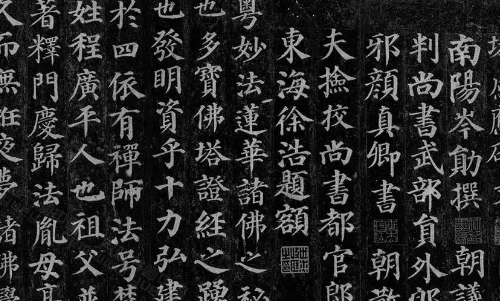 南陽岑勛撰 朝議
判尚書武部員外郎
邪顏真卿書 朝散
夫撿挍尚書都官郎
東海徐浩題額
粵妙法蓮華諸佛之秘
也多寶佛塔證經之踴
也發明資乎十力弘建
於四依有禪師法号楚
姓程廣平人也祖父並
著釋門慶歸法胤母高
久而無姙夜夢諸佛覺